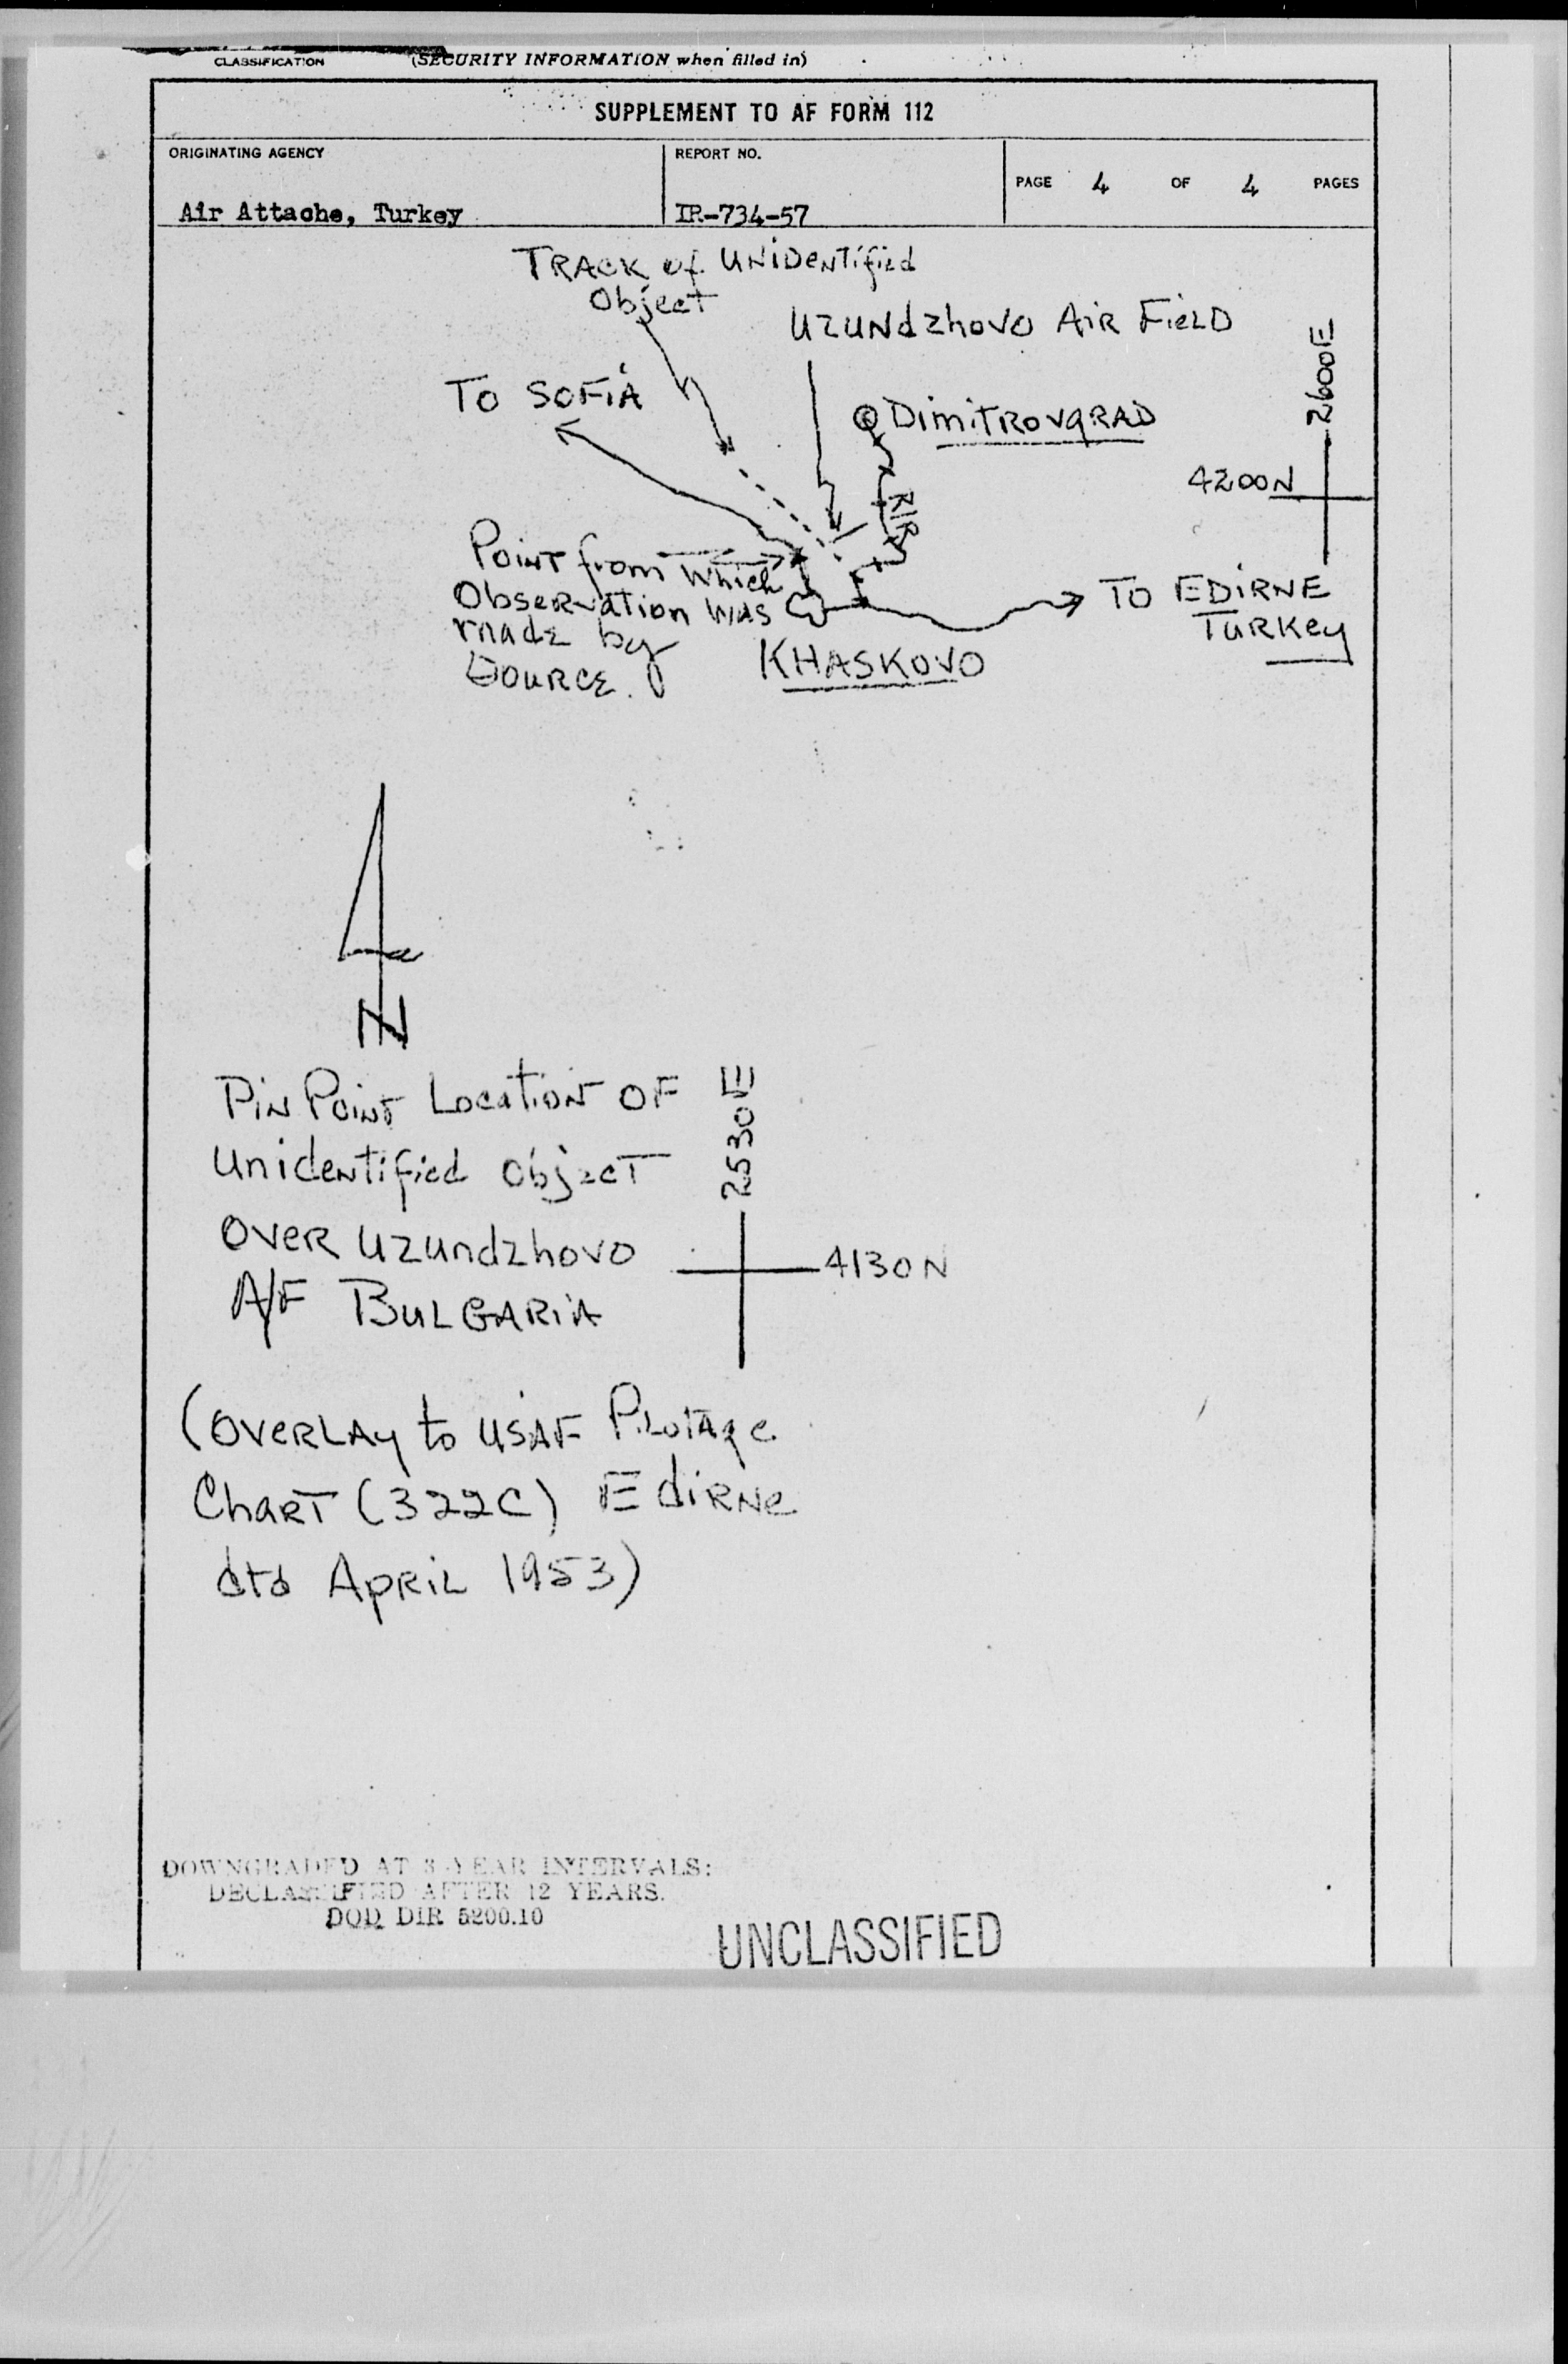 CLASSIFICATION
(SECURITY INFORMATION when filled in)
SUPPLEMENT TO AF FORM 112
ORIGINATING AGENCY
Air Attache, Turkey
REPORT NO.
IR-734-57
PAGE 4 OF 4 PAGES
TRACK of UNIDentified
Object
UZUNdzhovo AiR FieLD
2600E
To SOFiA
@ DimiTROvgRAD
4200N
R/R
Point from which
Observation was
made by
Source.
TO EDiRNE
TuRKey
KHASKOVO
N
PiN Point Location OF
Unidentified object
OveR Uzundzhovo
A/F BuLGARiA
2530E
4130N
(OveRLAy to USAF PiLoTAge
ChaRT (322C) EdiRNe
dtd ApRiL 1953)
DOWNGRADED AT 3 YEAR INTERVALS:
DECLASSIFIED AFTER 12 YEARS.
DOD DIR 5200.10
UNCLASSIFIED